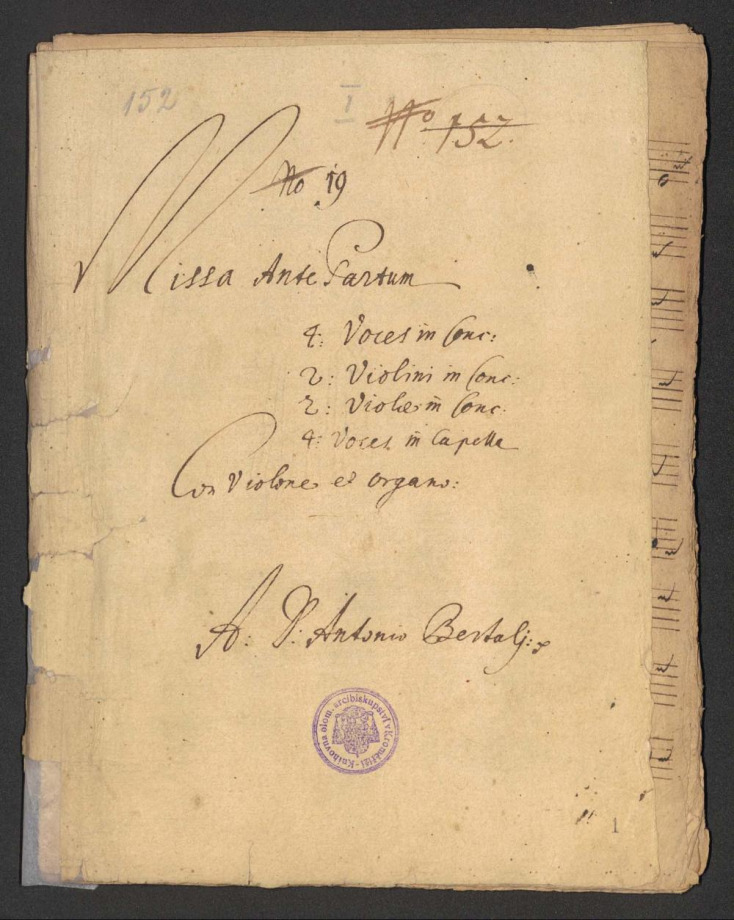 152
I
No 152.
No 19
Missa Ante Partum
4: Voces in Conc:
2: Violini in Conc:
2: Violæ in Conc:
4: Voces in Capella
Con Violone et Organo:
A: D: Antonio Bertalj:
Knihovna olom. arcibiskupství v Kroměříži
1